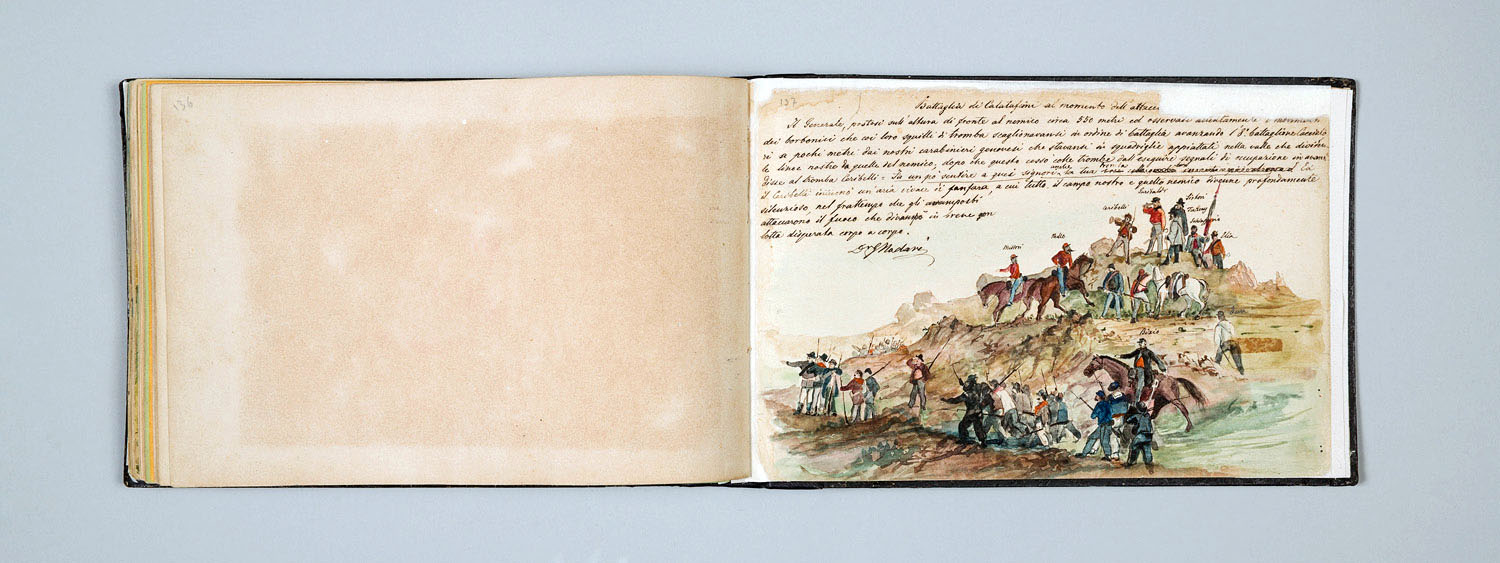 136
137
Battaglia di Calatafimi al momento dell'attacco
Il Generale, postosi sull'altura di fronte al nemico circa 550 metri ed osservati attentamente i movimenti
dei borbonici che coi loro squilli di tromba scaglionavansi in ordine di battaglia avanzando l'8° battaglione Cacciato
ri a pochi metri dai nostri carabinieri genovesi che stavansi in squadriglie appiattati nella valle che divide
le linee nostre da quelle del nemico; dopo che questo cessò colle trombe dall'eseguire segnali di occupazione in avanti
disse al tromba Ceribelli = Fa un pò sentire a quei signori anche la tua tromba Ed
il Ceribelli intuonò un'aria vivace di fanfara, a cui tutto il campo nostro e quello nemico divenne profondamente
silenzioso, nel frattempo che gli avamposti
attaccarono il fuoco che divampò in breve con
lotta disperata corpo a corpo.
Dr G Nadari
Garibaldi
Sirtori
Ceribelli
Türr
Schiaffino
Elia
Missori
Nullo
Bixio